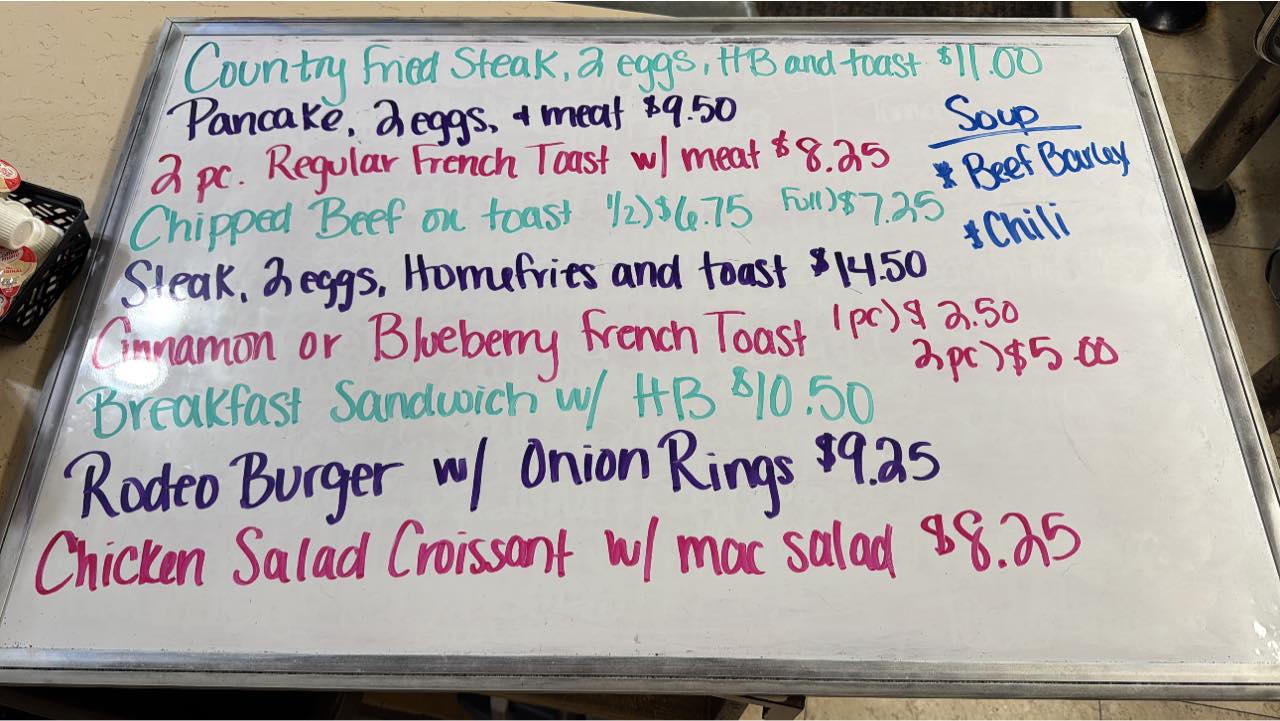 Country Fried Steak, 2 eggs, HB and toast $11.00
Pancake, 2 eggs, + meat $9.50
2 pc. Regular French Toast w/ meat $8.25
Chipped Beef on toast 1/2) $6.75 Full) $7.25
Steak, 2 eggs, Homefries and toast $14.50
Cinnamon or Blueberry French Toast 1pc) $2.50
2pc) $5.00
Breakfast Sandwich w/ HB $10.50
Rodeo Burger w/ Onion Rings $9.25
Chicken Salad Croissant w/ mac salad $8.25
Soup
* Beef Barley
* Chili